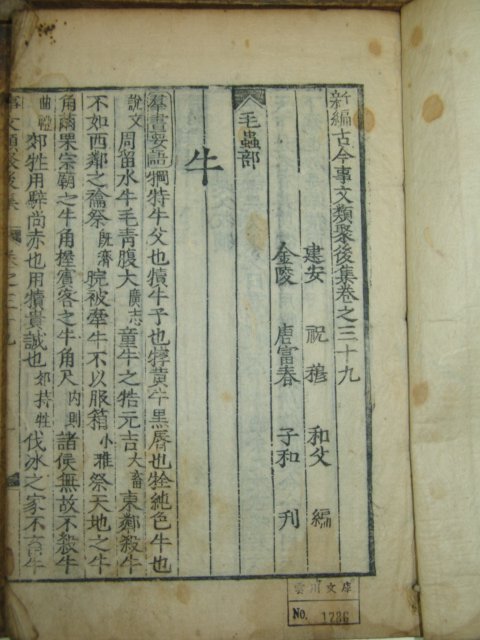 新編古今事文類聚後集卷之三十九
建安 祝穆 和父 編
金陵 唐富春 子和 刊
毛蟲部
牛
羣書要語犅特牛父也犢牛子也犉黃牛黑脣也牷純色牛也
說文周留水牛毛青腹大廣志童牛之牿元吉大畜東鄰殺牛
不如西鄰之禴祭旣濟睆被牽牛不以服箱小雅祭天地之牛
角繭栗宗廟之牛角握賓客之牛角尺內則諸侯無故不殺牛
曲禮郊牲用騂尚赤也用犢貴誠也郊特牲伐冰之家不畜牛
雲川文庫
No. 1236